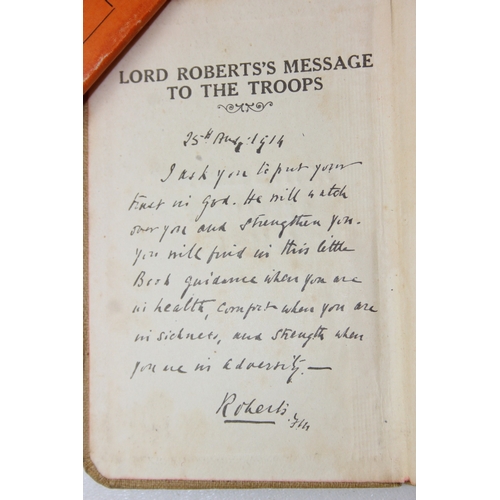 LORD ROBERTS'S MESSAGE
TO THE TROOPS
25th Aug. 1914
I ask you to put your
trust in God. He will watch
over you and strengthen you.
You will find in this little
Book guidance when you are
in health, comfort when you are
in sickness, and strength when
you are in adversity.—
Roberts
F.M.